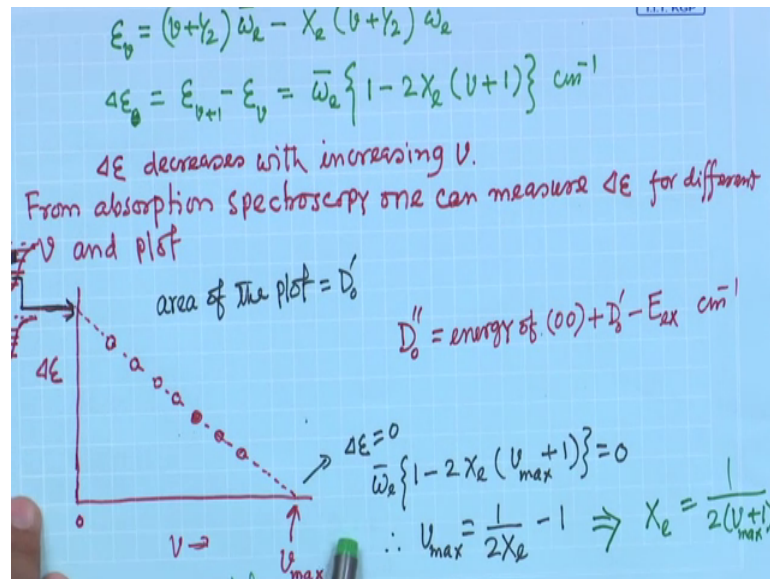 I.I.T. KGP
ε_v = (v+1/2) ω̄_e − x_e (v+1/2) ω_e
Δε_v = ε_{v+1} − ε_v = ω̄_e {1 − 2x_e (v+1)} cm⁻¹
Δε decreases with increasing v.
From absorption spectroscopy one can measure Δε for different
v and plot
area of the plot = D₀'
D₀'' = energy of (00) + D₀' − E_ex cm⁻¹
Δε
Δε = 0
ω̄_e {1 − 2x_e (v_max + 1)} = 0
∴ v_max = 1/(2x_e) − 1 ⇒ x_e = 1/(2(v_max+1)
0
v →
v_max